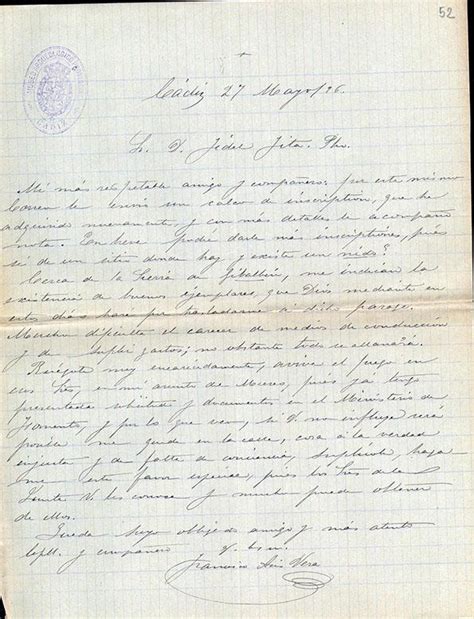 52
+
Cádiz 27 Mayo/96.
S. D. Fidel Fita. Pbro.
Mi más respetable amigo y compañero: por este mismo
Correo le envío un calco de inscripcion, que he
adquirido nuevamente, y con más detalles le acompaño
nota. En breve podré darle más inscripciones, pues
sé de un sitio donde hay y existe un nido?
Cerca de la Sierra de Gibalbin, me indican la
existencia de buenos ejemplares, que Dios mediante en
estos días haré por trasladarme á dicho paraje.
Mucho dificulta el carecer de medios de conducción
y de suplir gastos; no obstante todo se allanará.
Ruégole muy encarecidamente, avive el fuego en
esos Sres, en mi asunto de Museos, pues ya tengo
presentadas solicitud y documentos en el Ministerio de
Fomento, y por lo que veo, si V. no influye será
posible me quede en la calle, cosa á la verdad
injusta y de falta de conciencia, suplícole, haga
me este favor especial, pues los Sres de la
V. les conoce y mucho puede obtener
de ellos.
Queda suyo amigo y más atento
Capll. y compañero q. b. s. m.
Francisco Vera